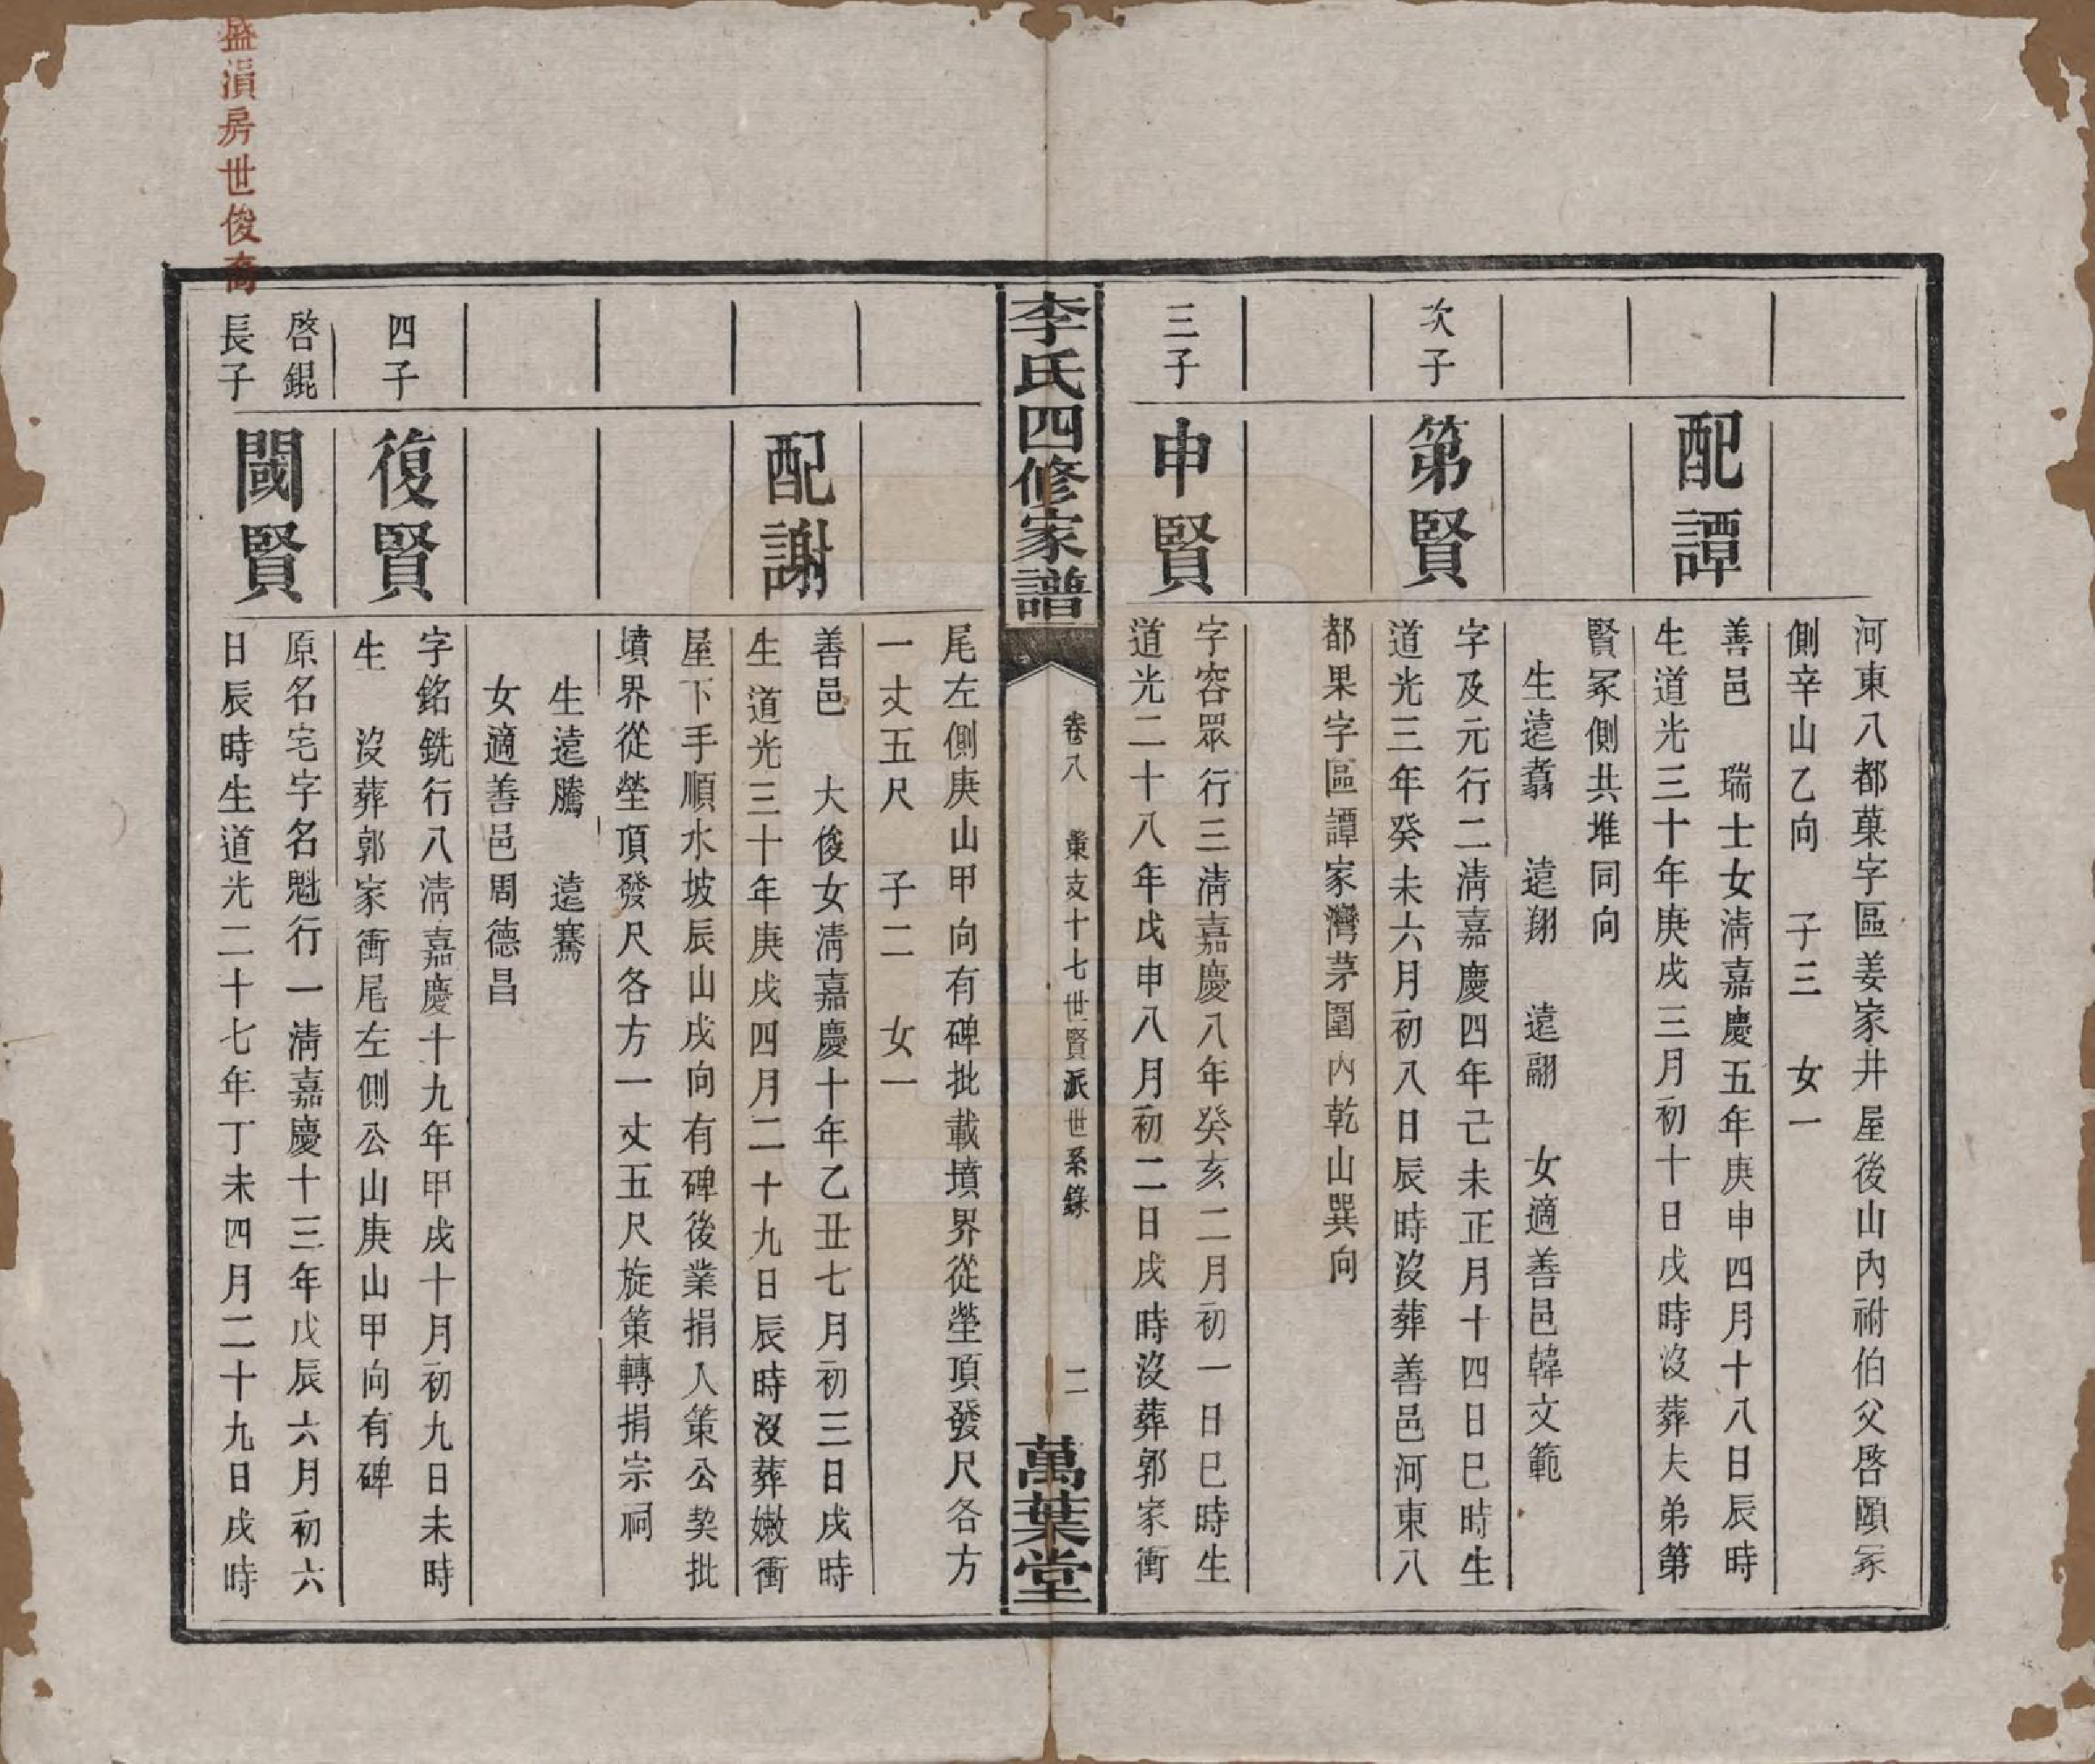 河東八都菓字區姜家井屋後山內祔伯父啓頤冢
側辛山乙向 子三 女一
配譚
善邑 瑞士女淸嘉慶五年庚申四月十八日辰時
生道光三十年庚戌三月初十日戌時沒葬夫弟第
賢冢側共堆同向
生遠翥 遠翔 遠翮 女適善邑韓文範
次子
第賢
字及元行二淸嘉慶四年己未正月十四日巳時生
道光三年癸未六月初八日辰時沒葬善邑河東八
都果字區譚家灣茅圍內乾山巽向
三子
申賢
字容眾行三淸嘉慶八年癸亥二月初一日巳時生
道光二十八年戊申八月初二日戌時沒葬郭家衝
李氏四修家譜
卷八
棠支十七世賢派世系錄
二
萬葉堂
尾左側庚山甲向有碑批載墳界從塋頂發尺各方
一丈五尺 子二 女一
配謝
善邑 大俊女淸嘉慶十年乙丑七月初三日戌時
生道光三十年庚戌四月二十九日辰時沒葬嫩衝
屋下手順水坡辰山戌向有碑後業捐入策公契批
墳界從塋頂發尺各方一丈五尺旋策轉捐宗祠
生遠騰 遠騫
女適善邑周德昌
四子
復賢
字銘銑行八淸嘉慶十九年甲戌十月初九日未時
生 沒葬郭家衝尾左側公山庚山甲向有碑
啓錕
長子
閾賢
原名宅字名魁行一淸嘉慶十三年戊辰六月初六
日辰時生道光二十七年丁未四月二十九日戌時
盛湏房世俊裔